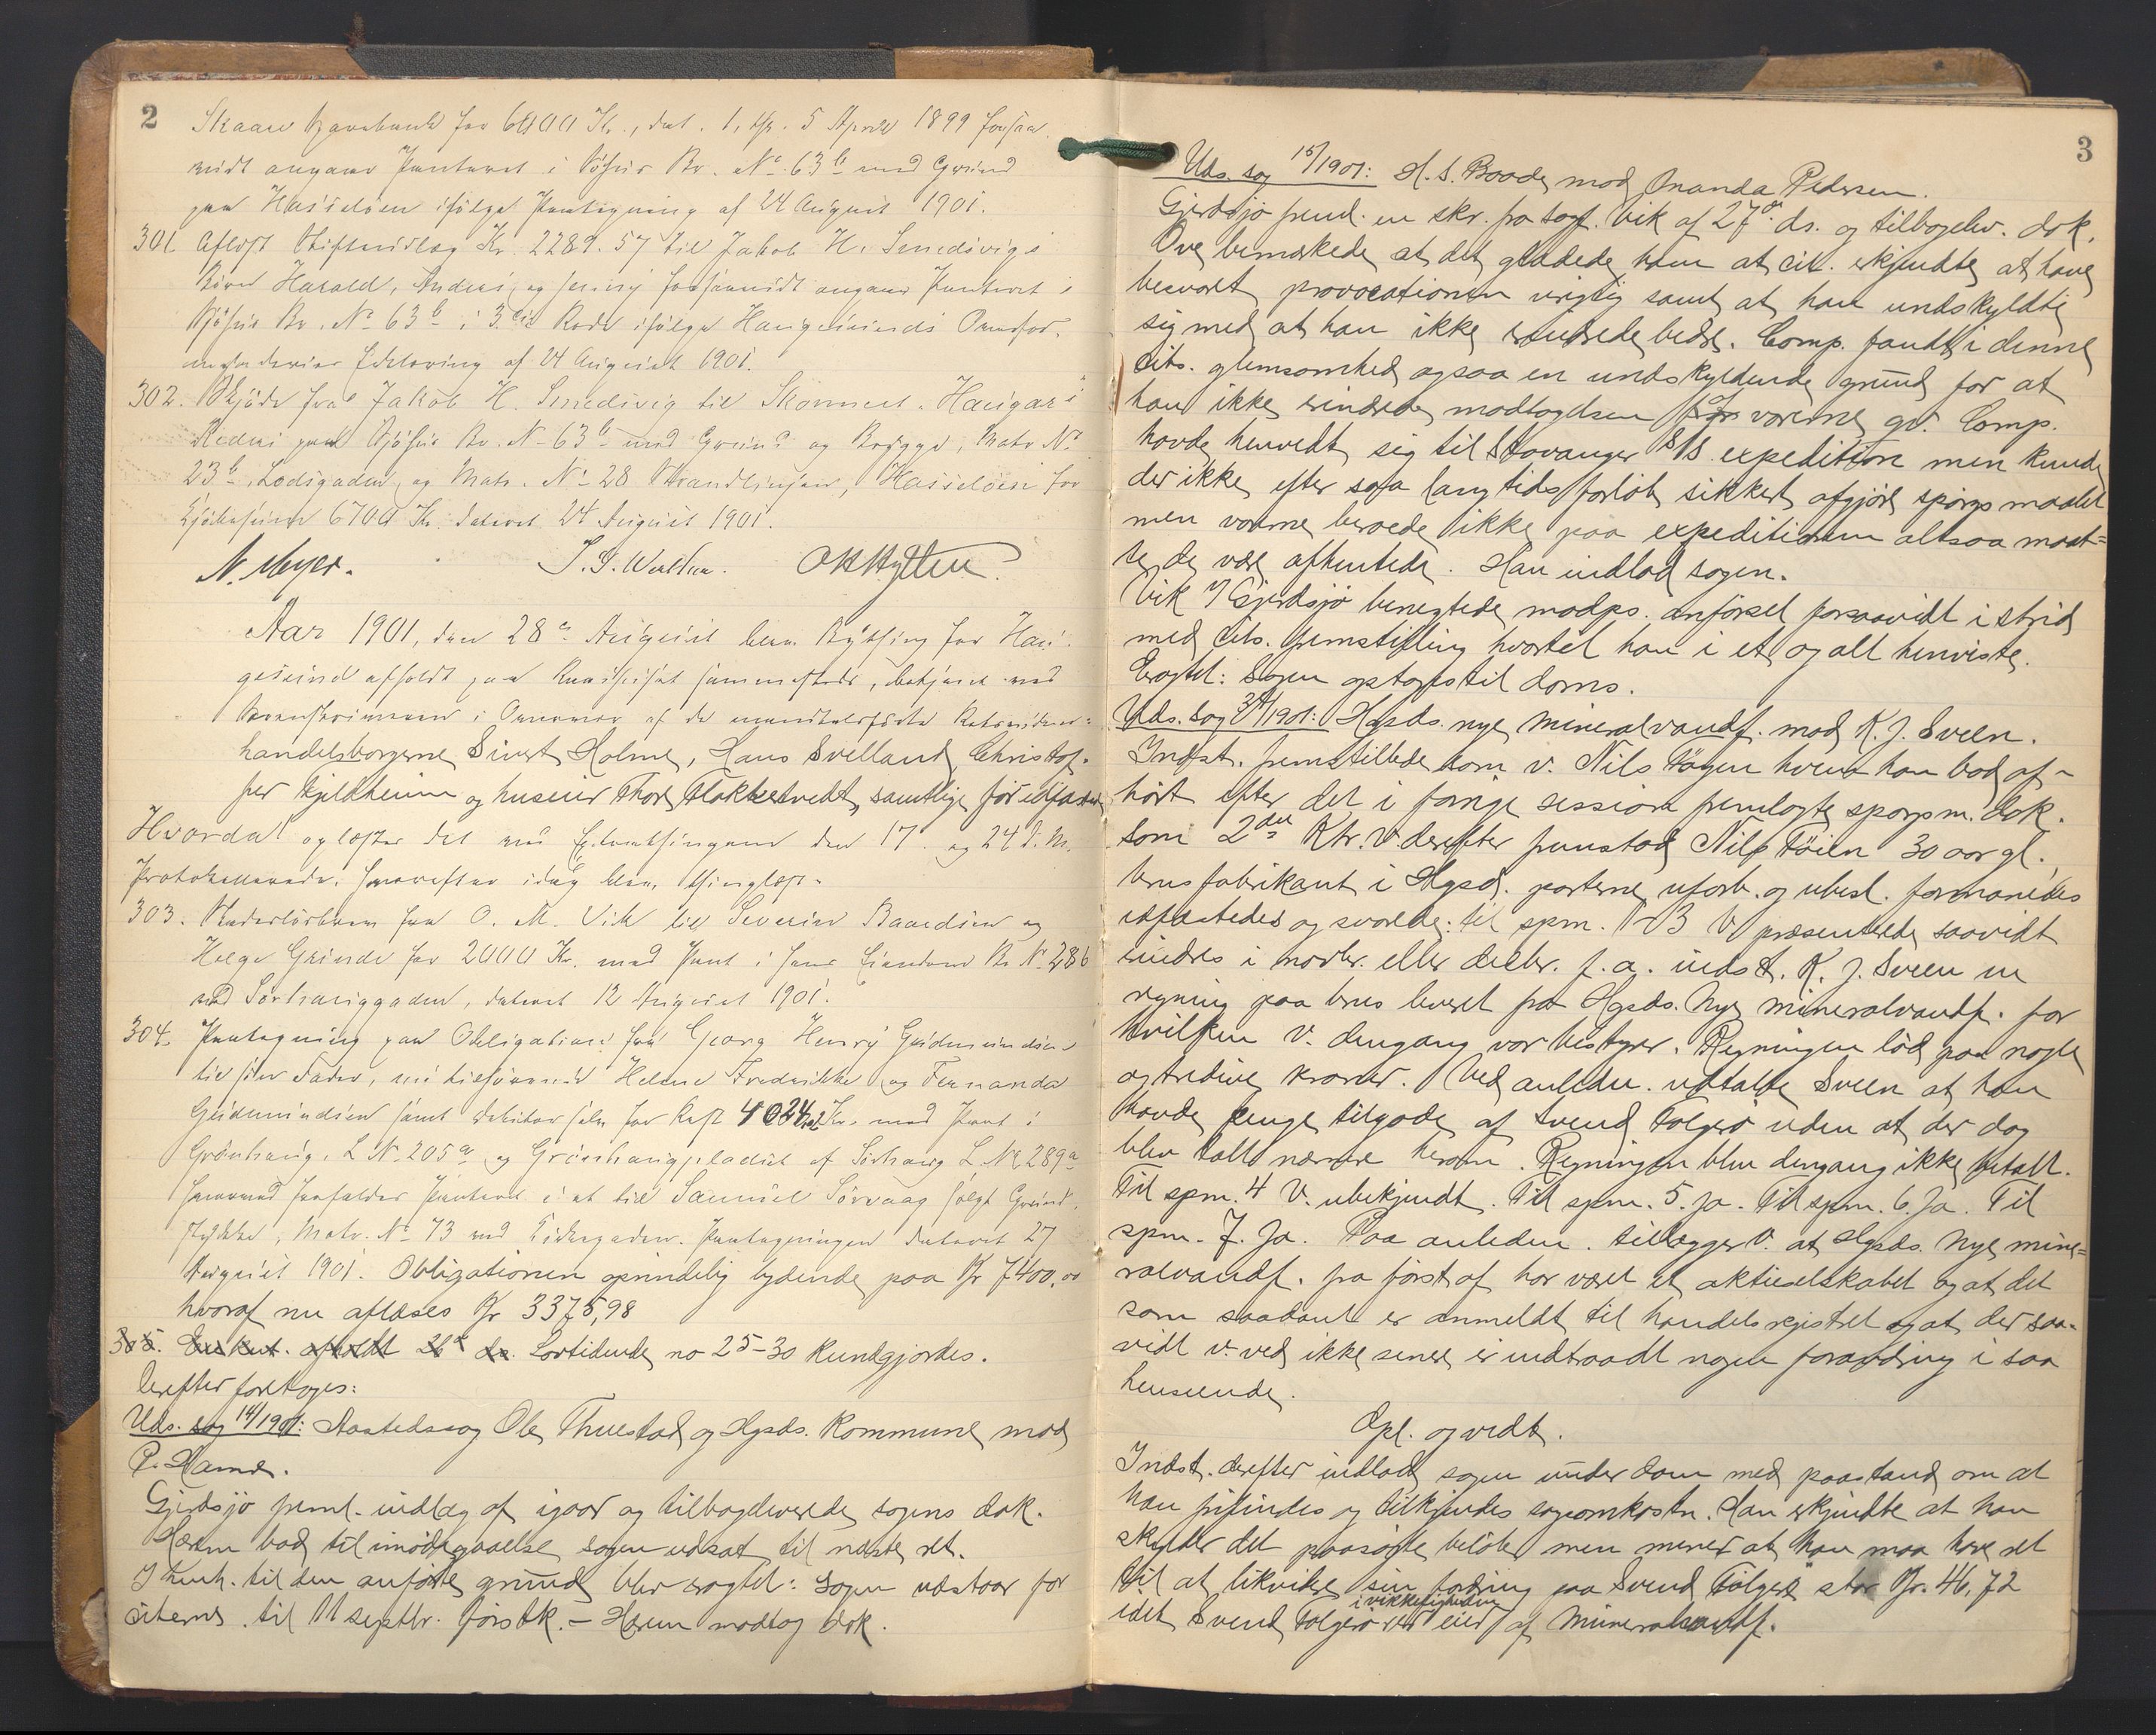 2
Skaare Sparebank for 6000 Kr., dat. 1, tgl. 5 April 1899 forsaa
vidt angaar Panteret i Søhus Br. No 63b med Grund
paa Hasseløen ifølge Paategning af 24 August 1901.
301. Aflyst Skifteudlæg Kr. 2289.57 til Jakob H. Smedsvigs
Børn Harald, Andrea og Jenny forsaavidt angaar Panteret i
Søhus Br. No 63b i 3die Rode ifølge Haugesunds Overfor-
mynderies Erklæring af 24 August 1901.
302. Skjøde fra Jakob H. Smedsvig til Skonnert "Haugar"s
Rederi paa Søhus Br. No 63b med Grund og Brygge, Matr No
23b, Lodsgaden og Matr. No 28 Strandlinjen, Hasseløen for
Kjøbesum 6700 Kr. dateret 24 August 1901.
N. Meyer.
Aar 1901, den 28de August blev Bything for Hau-
gesund afholdt paa Raadhuset sammesteds, betjent med
Sorenskriveren i Overvær af de mandtalsførte Retsvidner:
handelsborgerne Sivert Holme, Hans Svelland, Christof-
fer Kjeldheim og huseier Thore Flokketvedt, samtlige før edfæstet
Hvorda! oplæstes det ved Extrathingene den 17. og 24 d. M.
Protokollerede. Hvorefter idag blev thinglæst.
303. Skadesløsbrev fra O. M. Vik til Severin Baardsen og
Helge Grinde for 2000 Kr. med Pant i hans Eiendom Br No 286
ved Sørhauggaden, dateret 12 August 1901.
304. Paategning paa Obligation fra Georg Henry Gudmundsen
til sin Fader, nu tilhørende Helene Fredrikke og Fernanda
Gudmundsen samt debitor selv for Rest 4024,02 Kr. med Pant i
Grønhaug, L No 205a og Grønhaugpladset af Sørhaug L. No 289a
hvorved frafaldes Panteret i et til Samuel Sørvaag solgt Grund-
stykke, Matr. No 73 ved Tidesgaden. Paategningen dateret 27
August 1901. Obligationen oprindelig lydende paa Kr 7400,00
hvoraf nu aflæses Kr 3375,98
305. Lovtidende no 25-30 kundgjordes.
Derefter foretoges:
Uds. sag 14/1901: Aastedssag Ole Thuestad og Hgsds. Kommune mod
P. Hamre.
Gjerdsjø freml. indlæg af igaar og tilbageleverede sagens dok.
Hærem bad til imødegaaelse sagen udsat til næste ret.
I henh. til den anførte grund blev eragtet: Sagen udstaar for
citerne til 11 septbr. førstk. – Hærem modtog dok.
3
Uds. sag 15/1901: H. S. Baade mod Ananda Pedersen.
Gjerdsjø freml. en skr. fra sagf. Vik af 27de ds. og tilbagelev. dok.
Ove bemærkede at det glædede ham at cit. erkjendte at have
besvaret provocationen urigtig samt at han undskyldte
sig med at han ikke erindrede bedre. Comp. fandt i denne
cits. glemsomhed ogsaa en undskyldende grund for at
han ikke erindrede modtagelsen af varerne gr. Comp.
havde henvendt sig til Stavanger S/S expedition men kunde
der ikke efter saa lang tids forløb sikkert afgjøre spørgsmaalet
men varerne beroede ikke paa expeditionen altsaa maat-
te de være afhentede. Han indlod sagen.
Vik v/ Gjerdsjø benegtede modps. anførsel forsaavidt i strid
med cits. fremstilling hvortil han i et og alt henviste.
Eragtet: Sagen optages til doms.
Uds. sag 34/1901: Hgsds. nye mineralvandf. mod K. J. Sveen.
Indst. fremstillede som v. Nils Føyen hvem han bad af-
hørt efter det i forrige session fremlagte spørgsm. dok.
Som 2det Rtr. V. derefter fremstod Nils Føien 30 aar gl.
brusfabrikant i Hgsd. parterne uforb. og ubesl. formanedes
edfæstedes og svarede: til spm. 1-3 V præsenterede saavidt
erindres i novbr. eller decbr. f. a. indst. K. J. Sveen en
regning paa brus leveret fra Hgsds. Nye mineralvandf. for
hvilken V. dengang var bestyrer. Regningen lød paa nogle
og tredive kroner. Ved anledn. udtalte Sveen at han
havde penge tilgode af Svend Følgerø uden at der dog
blev talt nærmere herom. Regningen blev dengang ikke betalt.
Til spm. 4 V. ubekjendt. Til spm. 5. ja. Til spm. 6. Ja. Til
spm. 7. Ja. Paa anledn. tillægger V. at Hgsds. Nye mine-
ralvandf. fra først af har været et aktieselskabet og at det
som saadant er anmeldt til handelsregistret og at der saa-
vidt v. ved ikke senere er indtraadt nogen forandring i saa
henseende.
Opl. og vedt.
Indst. derefter indlod sagen under dom med paastand om at
han frifindes og tilkjendes sagsomkostn. Han erkjendte at han
skylder det paasøgte beløb men mener at han maa have ret
til at likvidere sin fordring paa Svend Følgerø stor Kr. 46,72
idet Svend Følgerø i virkeligheden eier af Mineralvandf.